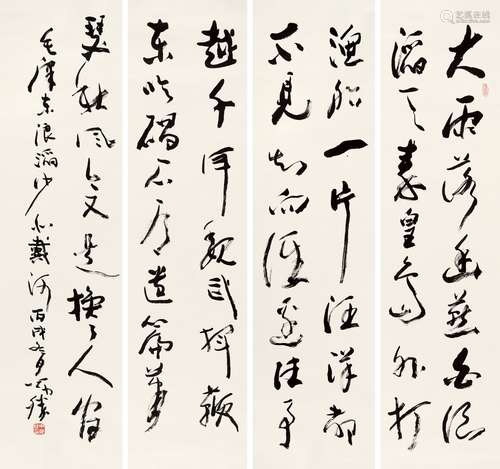 大雨落幽燕白浪
滔天秦皇岛外打
渔船一片汪洋都
不见知向谁边往事
越千年魏武挥鞭
东临碣石有遗篇萧
瑟秋风今又是换了人间
毛泽东浪滔沙北戴河丙戌
艺狐在线